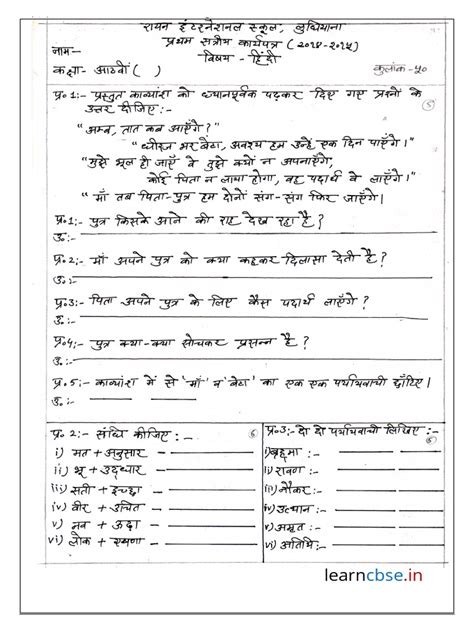 रायन इंटरनेशनल स्कूल, लुधियाना
प्रथम सत्रीय कार्यपत्र (२०१४-२०१५)
नाम-
विषय - हिंदी
कक्षा- आठवीं ( )
कुलांक-५०
प्र० 1:- प्रस्तुत काव्यांश को ध्यानपूर्वक पढ़कर दिए गए प्रश्नों के
उत्तर दीजिए:-
"अम्ब, तात कब आएँगे?"
"धीरज धर बेटा, अवश्य हम उन्हें एक दिन पाएँगे।"
"मुझे भूल ही जाएँ वे तुझे क्यों न अपनाएँगे,
कोई पिता न लाया होगा, वह पदार्थ वे लाएँगे।"
"माँ तब पिता-पुत्र हम दोनों संग-संग फिर जाएँगे।
प्र० 1:- पुत्र किसके आने की राह देख रहा है?
उ०:-
प्र० 2:- माँ अपने पुत्र को क्या कहकर दिलासा देती है?
उ०:-
प्र० 3:- पिता अपने पुत्र के लिए कैसा पदार्थ लाएँगे?
उ०:-
प्र० 4:- पुत्र क्या-क्या सोचकर प्रसन्न है?
उ०:-
प्र० 5:- काव्यांश में से 'माँ' व 'बेटा' का एक एक पर्यायवाची छाँटिए।
प्र० 2:- संधि कीजिए:-
i) मत + अनुसार -
ii) भू + उद्धार -
iii) सती + इच्छा -
iv) वीर + उचित -
v) नव + ऊढ़ा -
vi) लोक + एषणा -
प्र० 3:- दो दो पर्यायवाची लिखिए:-
i) ब्रह्मा :-
ii) रावण :-
iii) नौकर:-
iv) उत्थान :-
v) अमृत :-
vi) अतिथि:-
learncbse.in